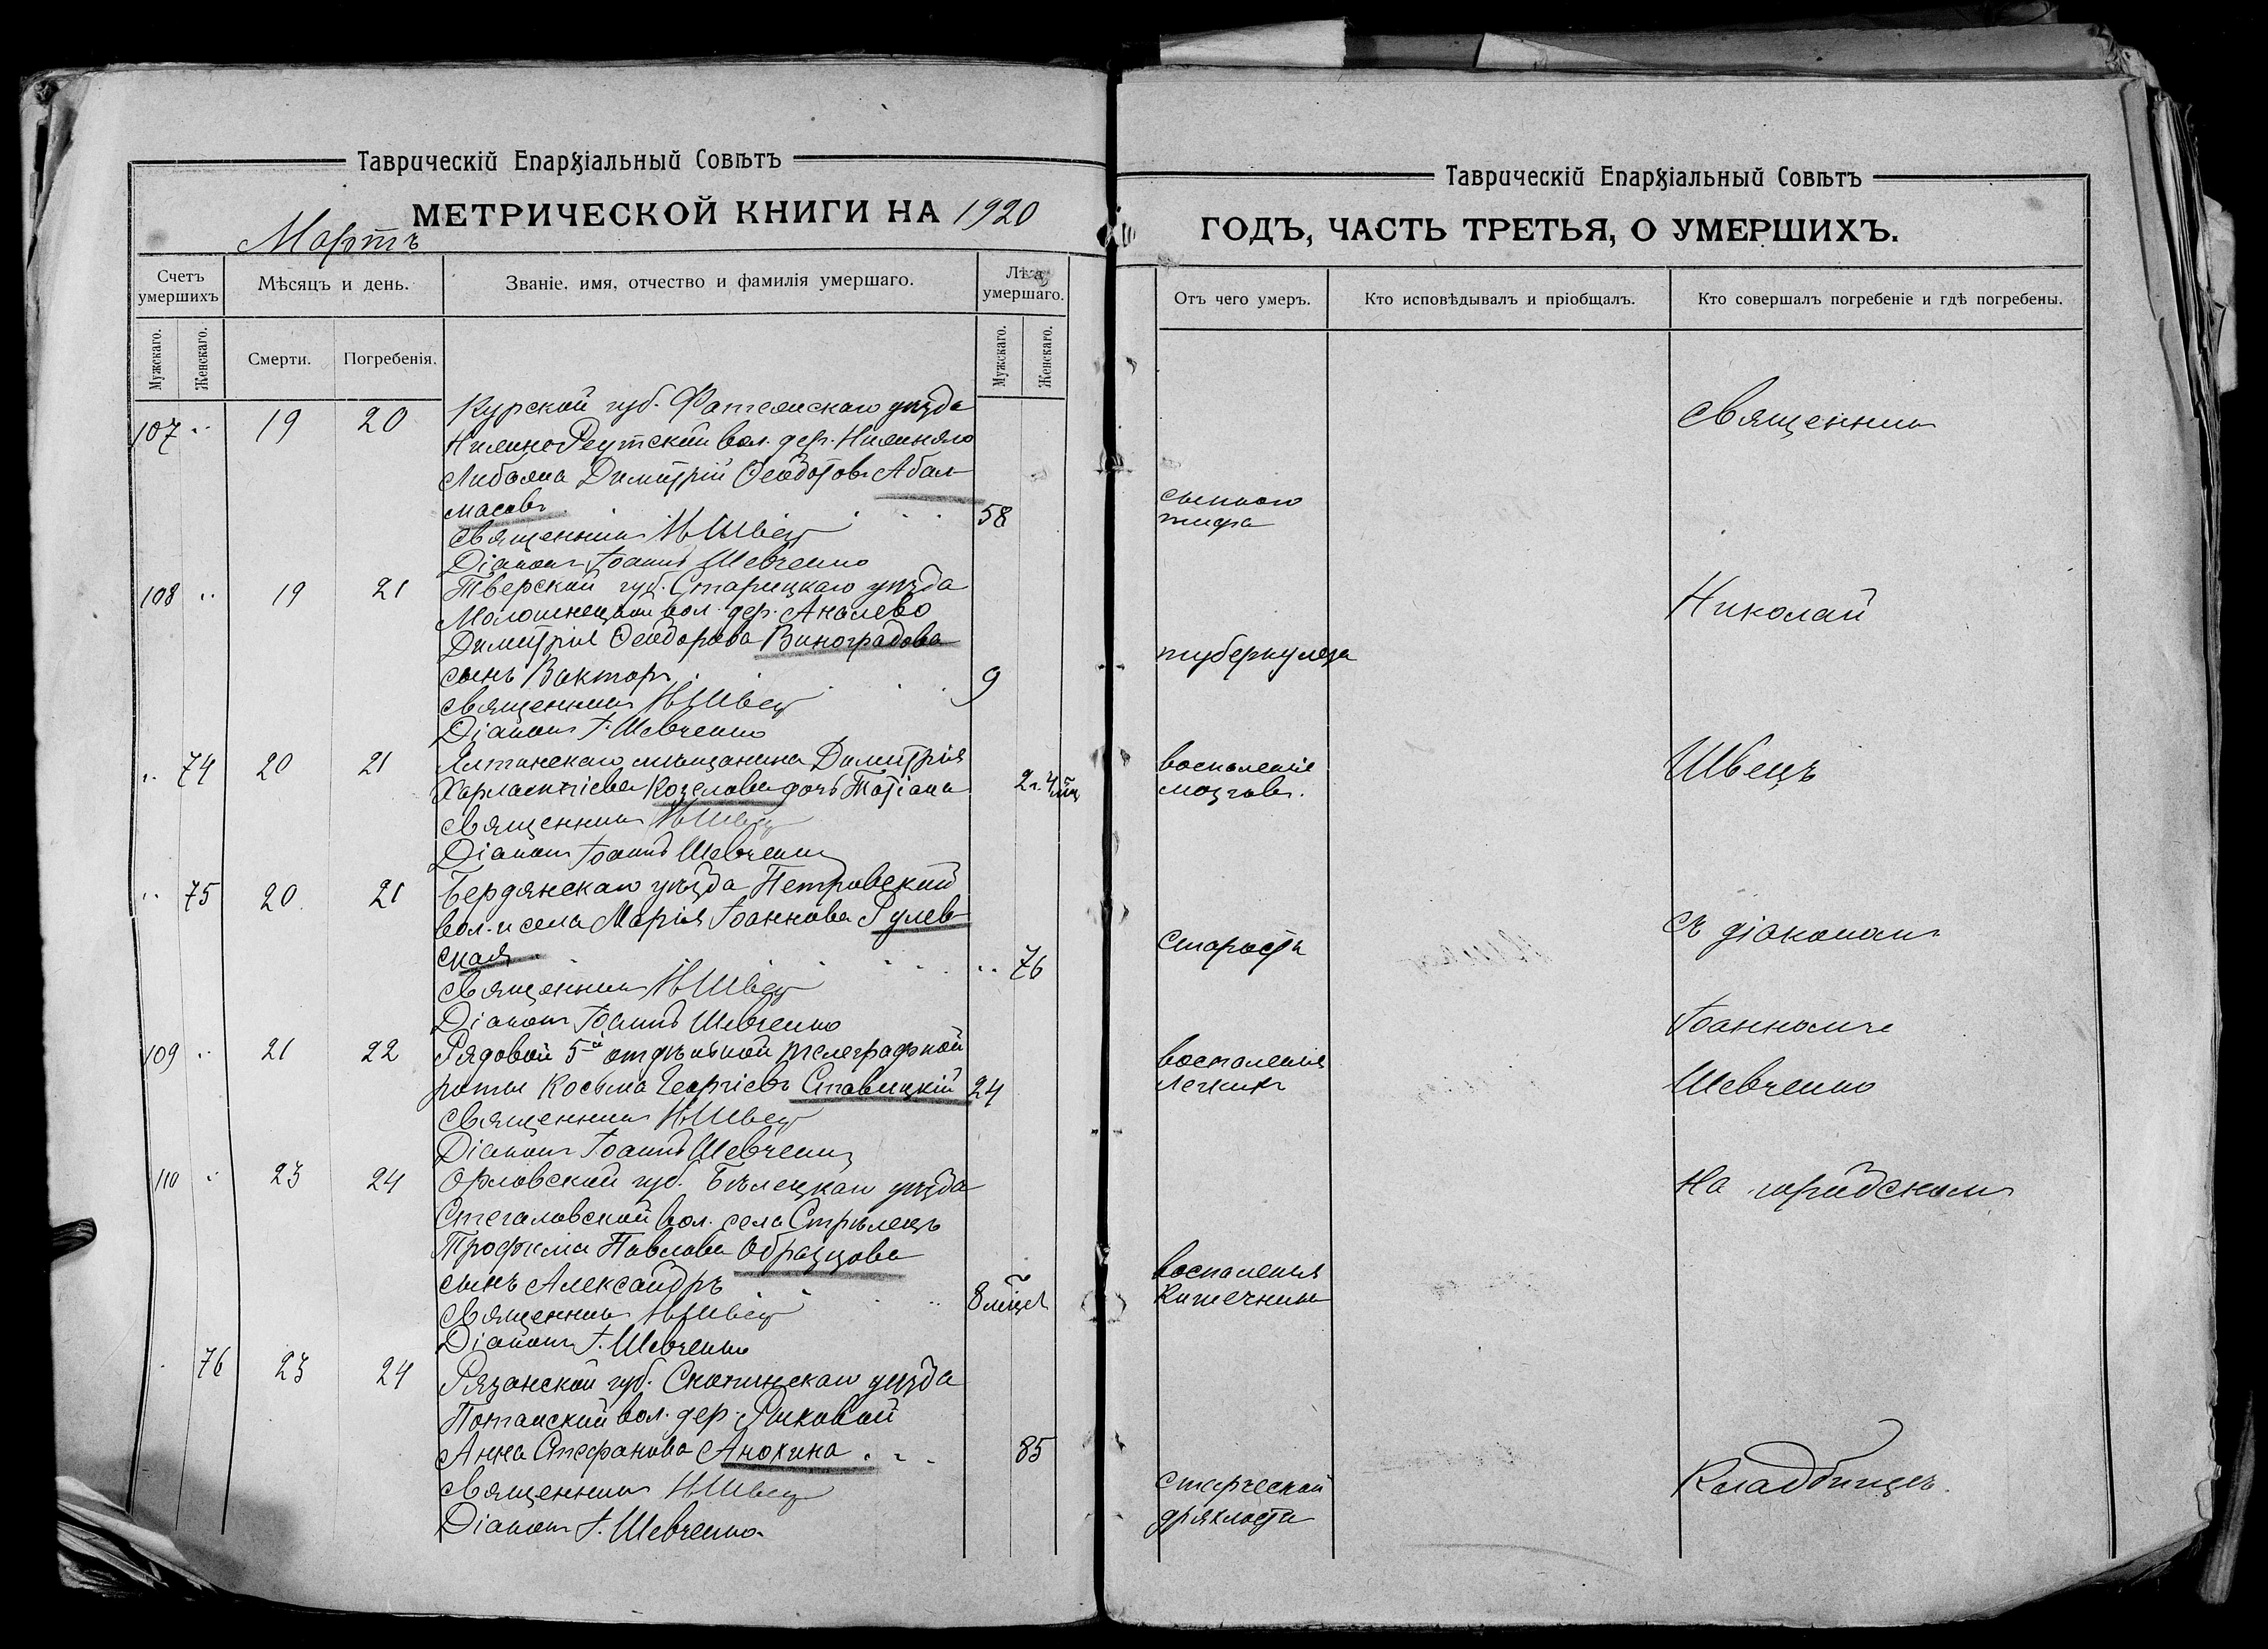 Таврическій Епархіальный Совѣтъ
МЕТРИЧЕСКОЙ КНИГИ НА 1920
Мартъ
Счетъ умершихъ
Мѣсяцъ и день.
Званіе, имя, отчество и фамилія умершаго.
Лѣта умершаго.
Мужскаго.
Женскаго.
Смерти.
Погребенія.
Мужскаго.
Женскаго.
107 " 19 20 Курской губ. Фатежскаго уѣзда
Реутской вол. дер.
Димитрій Ѳеодотовъ Абал-
масовъ 58
Священникъ Н Швец
Діаконъ Іоаннъ Шевченко
108 " 19 21 Тверской губ. Старицкаго уѣзда
вол. дер.
Димитрія Ѳеодорова Виноградова
сынъ Виктор 9
Священникъ Н Швец
Діаконъ І. Шевченко
" 74 20 21 Ялтинскаго мѣщанина Димитрія
Харлампіева Козелова дочь Татіана 2 г. 4 мѣс
Священникъ Н Швец
Діаконъ Іоаннъ Шевченко
" 75 20 21 Бердянскаго уѣзда Петровской
вол. и села Марія Іоаннова Рулев-
ская " 76
Священникъ Н Швец
Діаконъ Іоаннъ Шевченко
109 " 21 22 Рядовой 5й отдѣльной телеграфной
роты Косьма Георгіевъ Ставицкій 24
Священникъ Н Швец
Діаконъ Іоаннъ Шевченко
110 " 23 24 Орловской губ. Елецкаго уѣзда
Стегаловской вол. села Стрѣлецъ
Трофима Павлова Образцова
сынъ Александръ 8 мѣсяц
Священникъ Н Швец
Діаконъ І. Шевченко
76 23 24 Рязанской губ. Скопинскаго уѣзда
вол. дер. Рыковой
Анна Стефанова Анохина 85
Священникъ Н Швец
Діаконъ І. Шевченко
Таврическій Епархіальный Совѣтъ
ГОДЪ, ЧАСТЬ ТРЕТЬЯ, О УМЕРШИХЪ.
Отъ чего умеръ.
Кто исповѣдывалъ и пріобщалъ.
Кто совершалъ погребеніе и гдѣ погребены.
сыпного
тифа
туберкулеза
воспаленіе
мозговъ.
Старость
воспаленія
легкихъ
воспаленія
Кишечника
старческой
дряхлости
Священник
Николай
Швецъ
съ діаконом
Іоанномъ
Шевченко
На городском
Кладбищѣ.